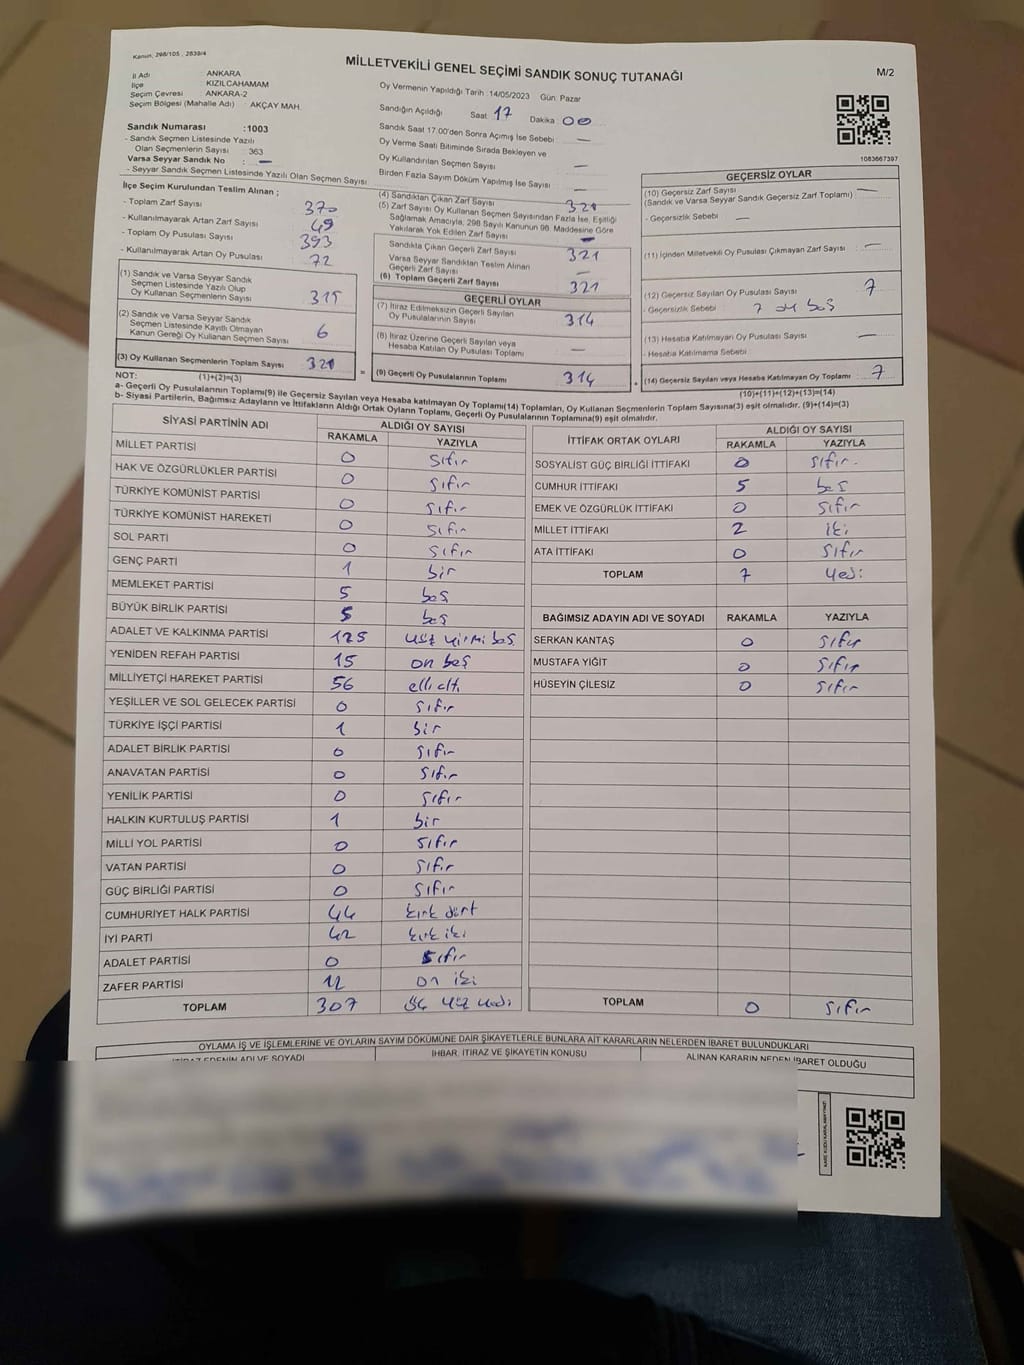 Kanun, 298/105 , 2839/4
MİLLETVEKİLİ GENEL SEÇİMİ SANDIK SONUÇ TUTANAĞI
M/2
İl Adı : ANKARA
İlçe : KIZILCAHAMAM
Seçim Çevresi : ANKARA-2
Seçim Bölgesi (Mahalle Adı) : AKÇAY MAH.
Oy Vermenin Yapıldığı Tarih :14/05/2023 Gün: Pazar
Sandığın Açıldığı Saat 17 Dakika 00
Sandık Saat 17.00'den Sonra Açılmış İse Sebebi —
Oy Verme Saati Bitiminde Sırada Bekleyen ve
Oy Kullandırılan Seçmen Sayısı —
Birden Fazla Sayım Döküm Yapılmış İse Sayısı —
Sandık Numarası :1003
- Sandık Seçmen Listesinde Yazılı
Olan Seçmenlerin Sayısı : 363
Varsa Seyyar Sandık No : —
- Seyyar Sandık Seçmen Listesinde Yazılı Olan Seçmen Sayısı
1083667397
İlçe Seçim Kurulundan Teslim Alınan ;
- Toplam Zarf Sayısı 370
- Kullanılmayarak Artan Zarf Sayısı 49
- Toplam Oy Pusulası Sayısı 393
- Kullanılmayarak Artan Oy Pusulası 72
(1) Sandık ve Varsa Seyyar Sandık
Seçmen Listesinde Yazılı Olup
Oy Kullanan Seçmenlerin Sayısı 315
(2) Sandık ve Varsa Seyyar Sandık
Seçmen Listesinde Kayıtlı Olmayan
Kanun Gereği Oy Kullanan Seçmen Sayısı 6
(3) Oy Kullanan Seçmenlerin Toplam Sayısı 321
(4) Sandıktan Çıkan Zarf Sayısı 321
(5) Zarf Sayısı Oy Kullanan Seçmen Sayısından Fazla İse, Eşitliği
Sağlamak Amacıyla, 298 Sayılı Kanunun 98. Maddesine Göre
Yakılarak Yok Edilen Zarf Sayısı —
Sandıkta Çıkan Geçerli Zarf Sayısı 321
Varsa Seyyar Sandıktan Teslim Alınan
Geçerli Zarf Sayısı —
(6) Toplam Geçerli Zarf Sayısı 321
GEÇERLİ OYLAR
(7) İtiraz Edilmeksizin Geçerli Sayılan
Oy Pusulalarının Sayısı 314
(8) İtiraz Üzerine Geçerli Sayılan veya
Hesaba Katılan Oy Pusulası Toplamı —
= (9) Geçerli Oy Pusulalarının Toplamı 314
GEÇERSİZ OYLAR
(10) Geçersiz Zarf Sayısı —
(Sandık ve Varsa Seyyar Sandık Geçersiz Zarf Toplamı)
- Geçersizlik Sebebi —
(11) İçinden Milletvekili Oy Pusulası Çıkmayan Zarf Sayısı —
(12) Geçersiz Sayılan Oy Pusulası Sayısı 7
- Geçersizlik Sebebi 7 boş
(13) Hesaba Katılmayan Oy Pusulası Sayısı —
- Hesaba Katılmama Sebebi
+ (14) Geçersiz Sayılan veya Hesaba Katılmayan Oy Toplamı 7
NOT: (1)+(2)=(3)
(10)+(11)+(12)+(13)=(14)
a- Geçerli Oy Pusulalarının Toplamı(9) ile Geçersiz Sayılan veya Hesaba katılmayan Oy Toplamı(14) Toplamları, Oy Kullanan Seçmenlerin Toplam Sayısına(3) eşit olmalıdır. (9)+(14)=(3)
b- Siyasi Partilerin, Bağımsız Adayların ve İttifakların Aldığı Ortak Oyların Toplamı, Geçerli Oy Pusulalarının Toplamına(9) eşit olmalıdır.
SİYASİ PARTİNİN ADI ALDIĞI OY SAYISI
RAKAMLA YAZIYLA
MİLLET PARTİSİ 0 sıfır
HAK VE ÖZGÜRLÜKLER PARTİSİ 0 sıfır
TÜRKİYE KOMÜNİST PARTİSİ 0 sıfır
TÜRKİYE KOMÜNİST HAREKETİ 0 sıfır
SOL PARTİ 0 sıfır
GENÇ PARTİ 1 bir
MEMLEKET PARTİSİ 5 beş
BÜYÜK BİRLİK PARTİSİ 5 beş
ADALET VE KALKINMA PARTİSİ 125 yüz yirmi beş
YENİDEN REFAH PARTİSİ 15 on beş
MİLLİYETÇİ HAREKET PARTİSİ 56 elli altı
YEŞİLLER VE SOL GELECEK PARTİSİ 0 sıfır
TÜRKİYE İŞÇİ PARTİSİ 1 bir
ADALET BİRLİK PARTİSİ 0 sıfır
ANAVATAN PARTİSİ 0 sıfır
YENİLİK PARTİSİ 0 sıfır
HALKIN KURTULUŞ PARTİSİ 1 bir
MİLLİ YOL PARTİSİ 0 sıfır
VATAN PARTİSİ 0 sıfır
GÜÇ BİRLİĞİ PARTİSİ 0 sıfır
CUMHURİYET HALK PARTİSİ 44 kırk dört
İYİ PARTİ 42 kırk iki
ADALET PARTİSİ 0 sıfır
ZAFER PARTİSİ 12 on iki
TOPLAM 307 üç yüz yedi
İTTİFAK ORTAK OYLARI ALDIĞI OY SAYISI
RAKAMLA YAZIYLA
SOSYALİST GÜÇ BİRLİĞİ İTTİFAKI 0 sıfır
CUMHUR İTTİFAKI 5 beş
EMEK VE ÖZGÜRLÜK İTTİFAKI 0 sıfır
MİLLET İTTİFAKI 2 iki
ATA İTTİFAKI 0 sıfır
TOPLAM 7 yedi
BAĞIMSIZ ADAYIN ADI VE SOYADI RAKAMLA YAZIYLA
SERKAN KANTAŞ 0 sıfır
MUSTAFA YİĞİT 0 sıfır
HÜSEYİN ÇİLESİZ 0 sıfır
TOPLAM 0 sıfır
OYLAMA İŞ VE İŞLEMLERİNE VE OYLARIN SAYIM DÖKÜMÜNE DAİR ŞİKAYETLERLE BUNLARA AİT KARARLARIN NELERDEN İBARET BULUNDUKLARI
İTİRAZ EDENİN ADI VE SOYADI
İHBAR, İTİRAZ VE ŞİKAYETİN KONUSU
ALINAN KARARIN NEDEN İBARET OLDUĞU